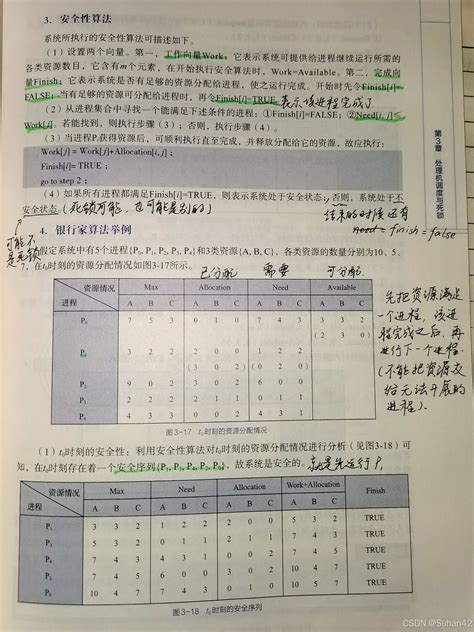 3. 安全性算法
系统所执行的安全性算法可描述如下。
(1) 设置两个向量。第一, 工作向量Work, 它表示系统可提供给进程继续运行所需的
各类资源数目, 它含有m个元素, 在开始执行安全性算法时, Work=Available。第二, 完成向
量Finish, 它表示系统是否有足够的资源分配给进程, 使之运行完成。开始时先令Finish[i]=
FALSE; 当有足够的资源可分配给进程时, 再令Finish[i]=TRUE。表示该进程完成了
(2) 从进程集合中寻找一个能满足下述条件的进程: ①Finish[i]=FALSE; ②Need[i, j]≤
Work[j]。若能找到, 则执行步骤 (3); 否则, 执行步骤 (4)。
(3) 当进程Pi获得资源后, 可顺利执行直至完成, 并释放分配给它的资源, 故应执行:
Work[j] = Work[j]+Allocation[i, j] ;
Finish[i]= TRUE ;
go to step 2 ;
(4) 如果所有进程都满足Finish[i]=TRUE, 则表示系统处于安全状态; 否则, 系统处于不
安全状态。(死锁可能, 也可能是别的)
结束的时候还有
need= finish = false
可能不
是死锁
第3章 处理机调度与死锁
4. 银行家算法举例
假定系统中有5个进程{P0, P1, P2, P3, P4}和3类资源{A, B, C}, 各类资源的数量分别为10、5、
7, 在t0时刻的资源分配情况如图3-17所示。
已分配 需要 可分配
资源情况 Max Allocation Need Available
进程 A B C A B C A B C A B C
P0 7 5 3 0 1 0 7 4 3 3 3 2
(2 3 0)
P1 3 2 2 2 0 0 1 2 2
(3 0 2) (0 2 0)
P2 9 0 2 3 0 2 6 0 0
P3 2 2 2 2 1 1 0 1 1
P4 4 3 3 0 0 2 4 3 1
先把资源满足
一个进程, 该进
程完成之后, 再
进行下一个进程.
(不能把资源交
给无法开展的
进程).
图3-17 t0时刻的资源分配情况
(1) t0时刻的安全性: 利用安全性算法对t0时刻的资源分配情况进行分析 (见图3-18) 可
知, 在t0时刻存在着一个安全序列{P1, P3, P4, P2, P0}, 故系统是安全的。就是先运行P1
资源情况 Max Need Allocation Work+Allocation Finish
进程 A B C A B C A B C A B C
P1 3 3 2 1 2 2 2 0 0 5 3 2 TRUE
P3 5 3 2 0 1 1 2 1 1 7 4 3 TRUE
P4 7 4 3 4 3 1 0 0 2 7 4 5 TRUE
P2 7 4 5 6 0 0 3 0 2 10 4 7 TRUE
P0 10 4 7 7 4 3 0 1 0 10 5 7 TRUE
图3-18 t0时刻的安全序列
CSDN @Suhan42